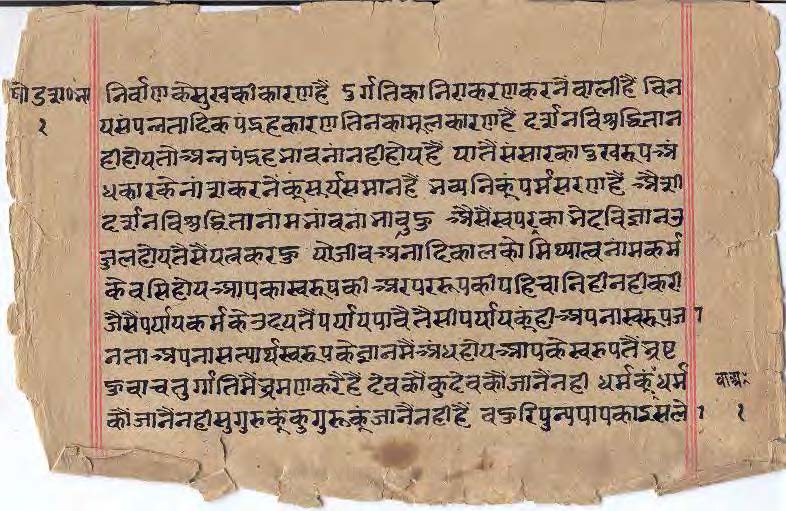 निर्वाण के सुख की कारण है दुर्गति का निराकरण करनै वाली है विन
यसंपन्नतादिक पंद्रह कारण तिन का मूल कारण है दर्शनविशुद्धिता न
ही होय तो अन्य पंद्रह भावनां नही होय है यातै संसार का दुखरूप अं
धकार के नाश करनेकूं सूर्य समान है भव्यनिकूं पर्म सरण है अैसी
दर्शनविशुद्धिता नाम भावनां भावहु अैसै स्वपर का भेदविज्ञान उ
ज्जल होय तैसै यत्न करहु यो जीव अनादिकाल को मिथ्यात्वनाम कर्म
के वसि होय आपका स्वरूप की अर पर रूप की पहिचानि ही नही करी
जैसै पर्याय कर्म के उदय तै पर्याय पावै तैसी पर्यायकूं ही अपना स्वरूप जा
नता अपना सत्यार्थ स्वरूप के ज्ञान मै अंध होय आप के स्वरूप तै भ्रष्ट
हुवा चतुर्गति मै भ्रमण करै है देवकौ कुदेवकौ जानै नही धर्मकूं धर्म
कौ जानै नही सुगुरुकूं कुगुरुकूं जानै नही है वहुरि पुन्य पाप का इस ले
१
१